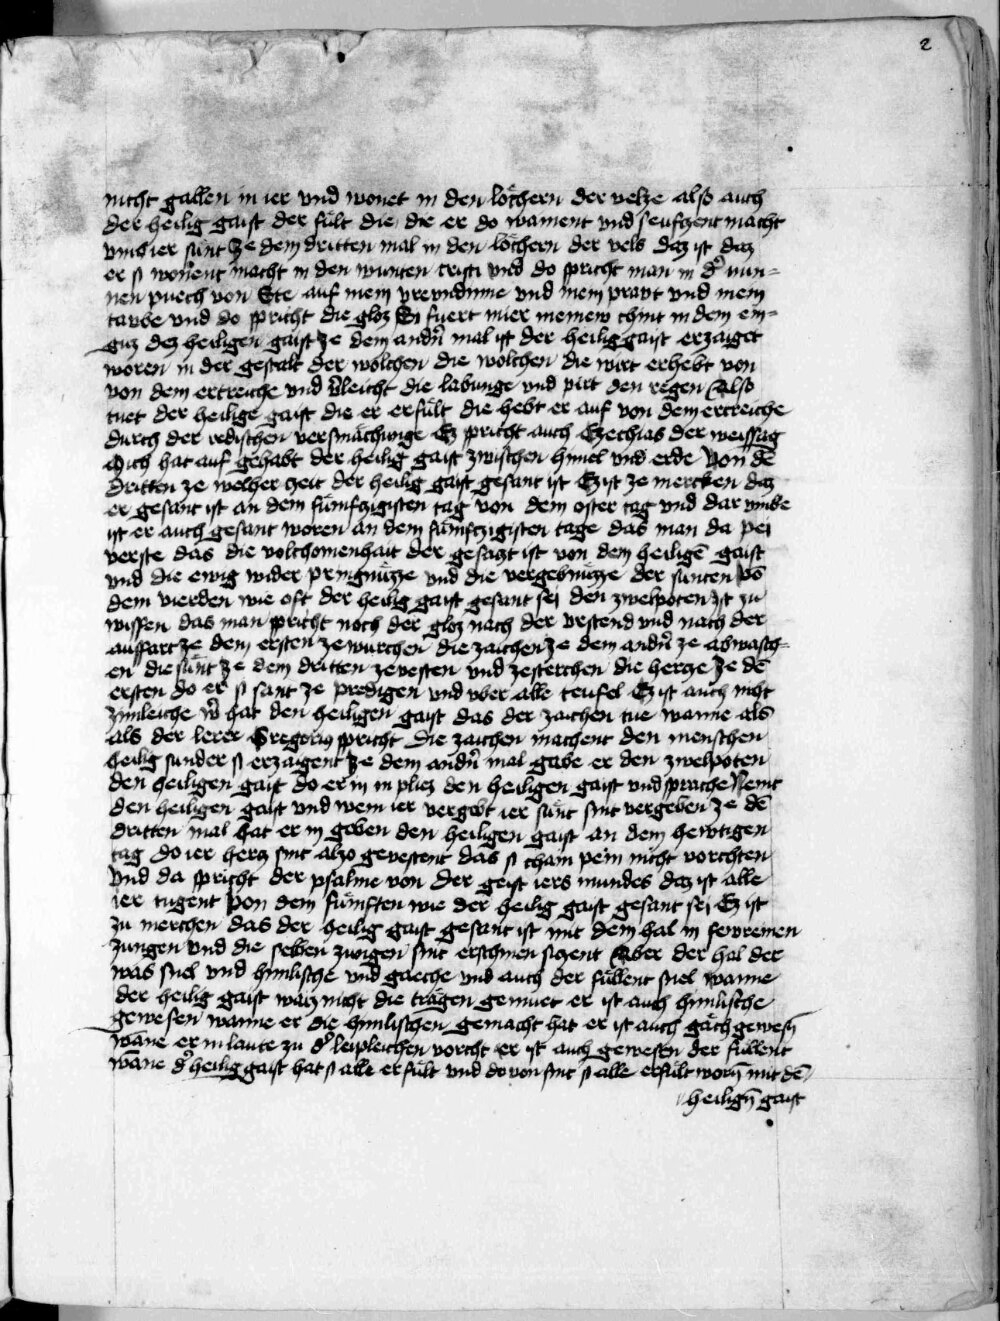 2
nicht gallen in ier vnd wonet in den löchern der velze also auch
der heilig gaist der fült die die er do wament vnd seufczent macht
vmb ier sünt Ze dem dritten mal in den löchern der vels daz ist daz
er si wonent macht in den wunten cristi vnd do spricht man in dˀ min=
nen puech von Ste auf mein vrewndinne vnd mein prawt vnd mein
tawbe vnd do spricht die gloz Si fuert mier meinew chint in dem ein=
guz dez heiligen gaist Ze dem andn̄ mal ist der heilig gaist erzaiget
woren in der gestalt der wolchen die wolchen die wirt erhebt von
von dem ertreiche vnd v̄leicht die labunge vnd pirt den regen Also
tuet der heilige gaist die er erfült die hebt er auf von dem ertreiche
durch der irdischen versmächunge Ez spricht auch Ezechias der weissag
Mich hat auf gehabt der heilig gaist zwischen himel vnd erde Von dē
dritten ze welher zeit der heilig gaist gesant ist Ez ist ze mercken daz
er gesant ist an dem fümfczigisten tag von dem oster tag vnd dar vmbe
ist er auch gesant woren an dem fümfczigisten tage das man da pei
verste das die volchomenhait der gesaczt ist von dem heiligē gaist
vnd die ewig wider pringnüzze vnd die vergebnüzze der sünten Vō
dem vierden wie oft der heilig gaist gesant sei den zwelpoten Ist zu
wissen das man spricht noch der gloz nach der vrstend vnd nach der
auffart ze dem ersten ze wurchen die zaichen ze dem andn̄ ze abwasch=
en die sünt ze dem dritten ze vesten vnd ze sterchen die hercze Ze dē
ersten do er si sant ze predigen vnd vber alle teufel Ez ist auch nicht
zimleiche w̄ hat den heiligen gaist das der zaichen tue wanne als
als der lerer Gregorius spricht die zaichen machent den menschen
heilig sunder si erzaigent Ze dem andn̄ mal gabe er den zwelpoten
den heiligen gaist do er in in plies den heiligen gaist vnd sprache Nemt
den heiligen gaist vnd wem ier vergebt ier sünt sint vergeben Ze dē
dritten mal hat er in geben den heiligen gaist an dem hewtigen
tag do ier hercz sint alzo gevestent das si cham pein nicht vorchten
vnd da spricht der psalme von der geist iers mundes daz ist alle
ier tugent Von dem fümften wie der heilig gaist gesant sei Ez ist
zu merchen das der heilig gaist gesant ist mit dem hal in fewreinen
zungen vnd die selben zungen sint erschinen siczent Aber der hal der
was snel vnd himlische vnd gaeche vnd auch der füllent snel wanne
der heilig gaist waiz nicht die trägen gemuet er ist auch himlische
gewesen wanne er die himlischen gemacht hat er ist auch gäch gewesn̄
wāne er in laite zu dˀ leipleichen vorcht er ist auch gewesen der füllent
wāne dˀ heilig gaist hat si alle erfült vnd do von sint si alle erfült worn̄ mit dē
heilign̄ gaist